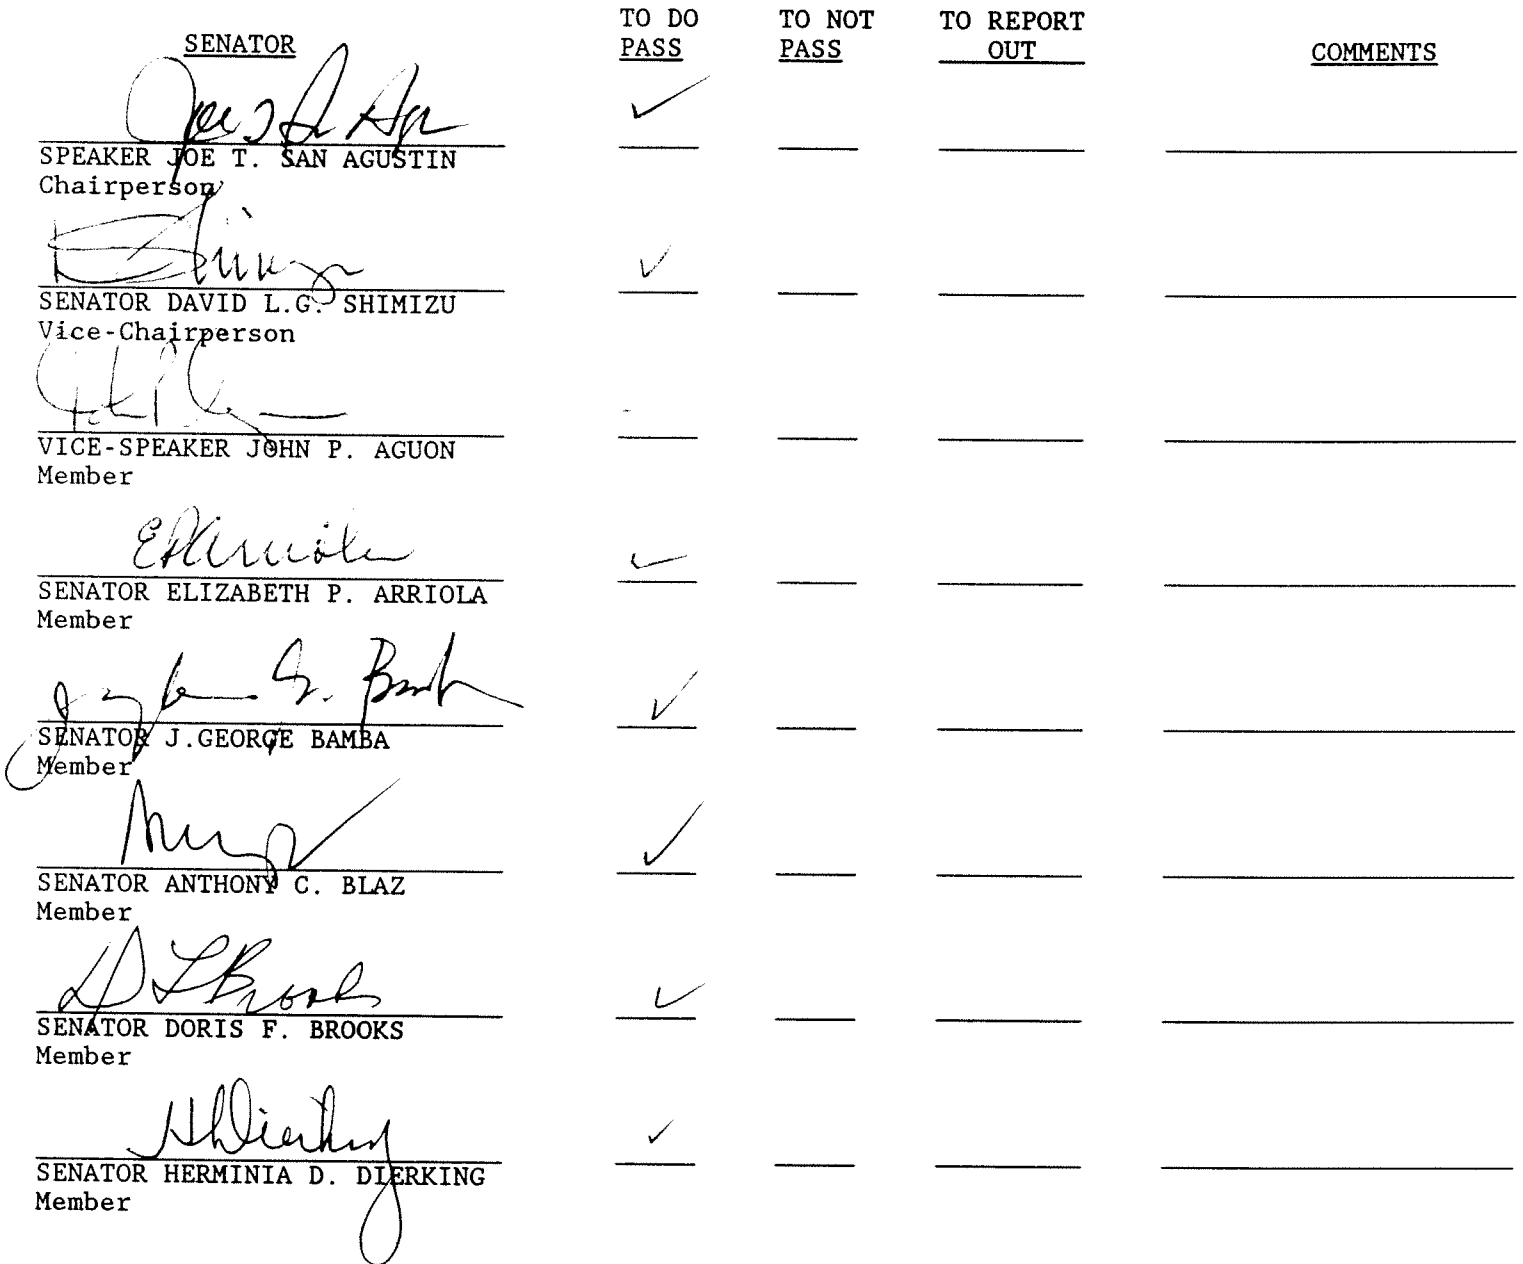 SENATOR TO DO PASS TO NOT PASS TO REPORT OUT COMMENTS
✓
SPEAKER JOE T. SAN AGUSTIN
Chairperson
✓
SENATOR DAVID L.G. SHIMIZU
Vice-Chairperson
VICE-SPEAKER JOHN P. AGUON
Member
EPArriola ✓
SENATOR ELIZABETH P. ARRIOLA
Member
✓
SENATOR J.GEORGE BAMBA
Member
✓
SENATOR ANTHONY C. BLAZ
Member
D F Brooks ✓
SENATOR DORIS F. BROOKS
Member
HDDierking ✓
SENATOR HERMINIA D. DIERKING
Member